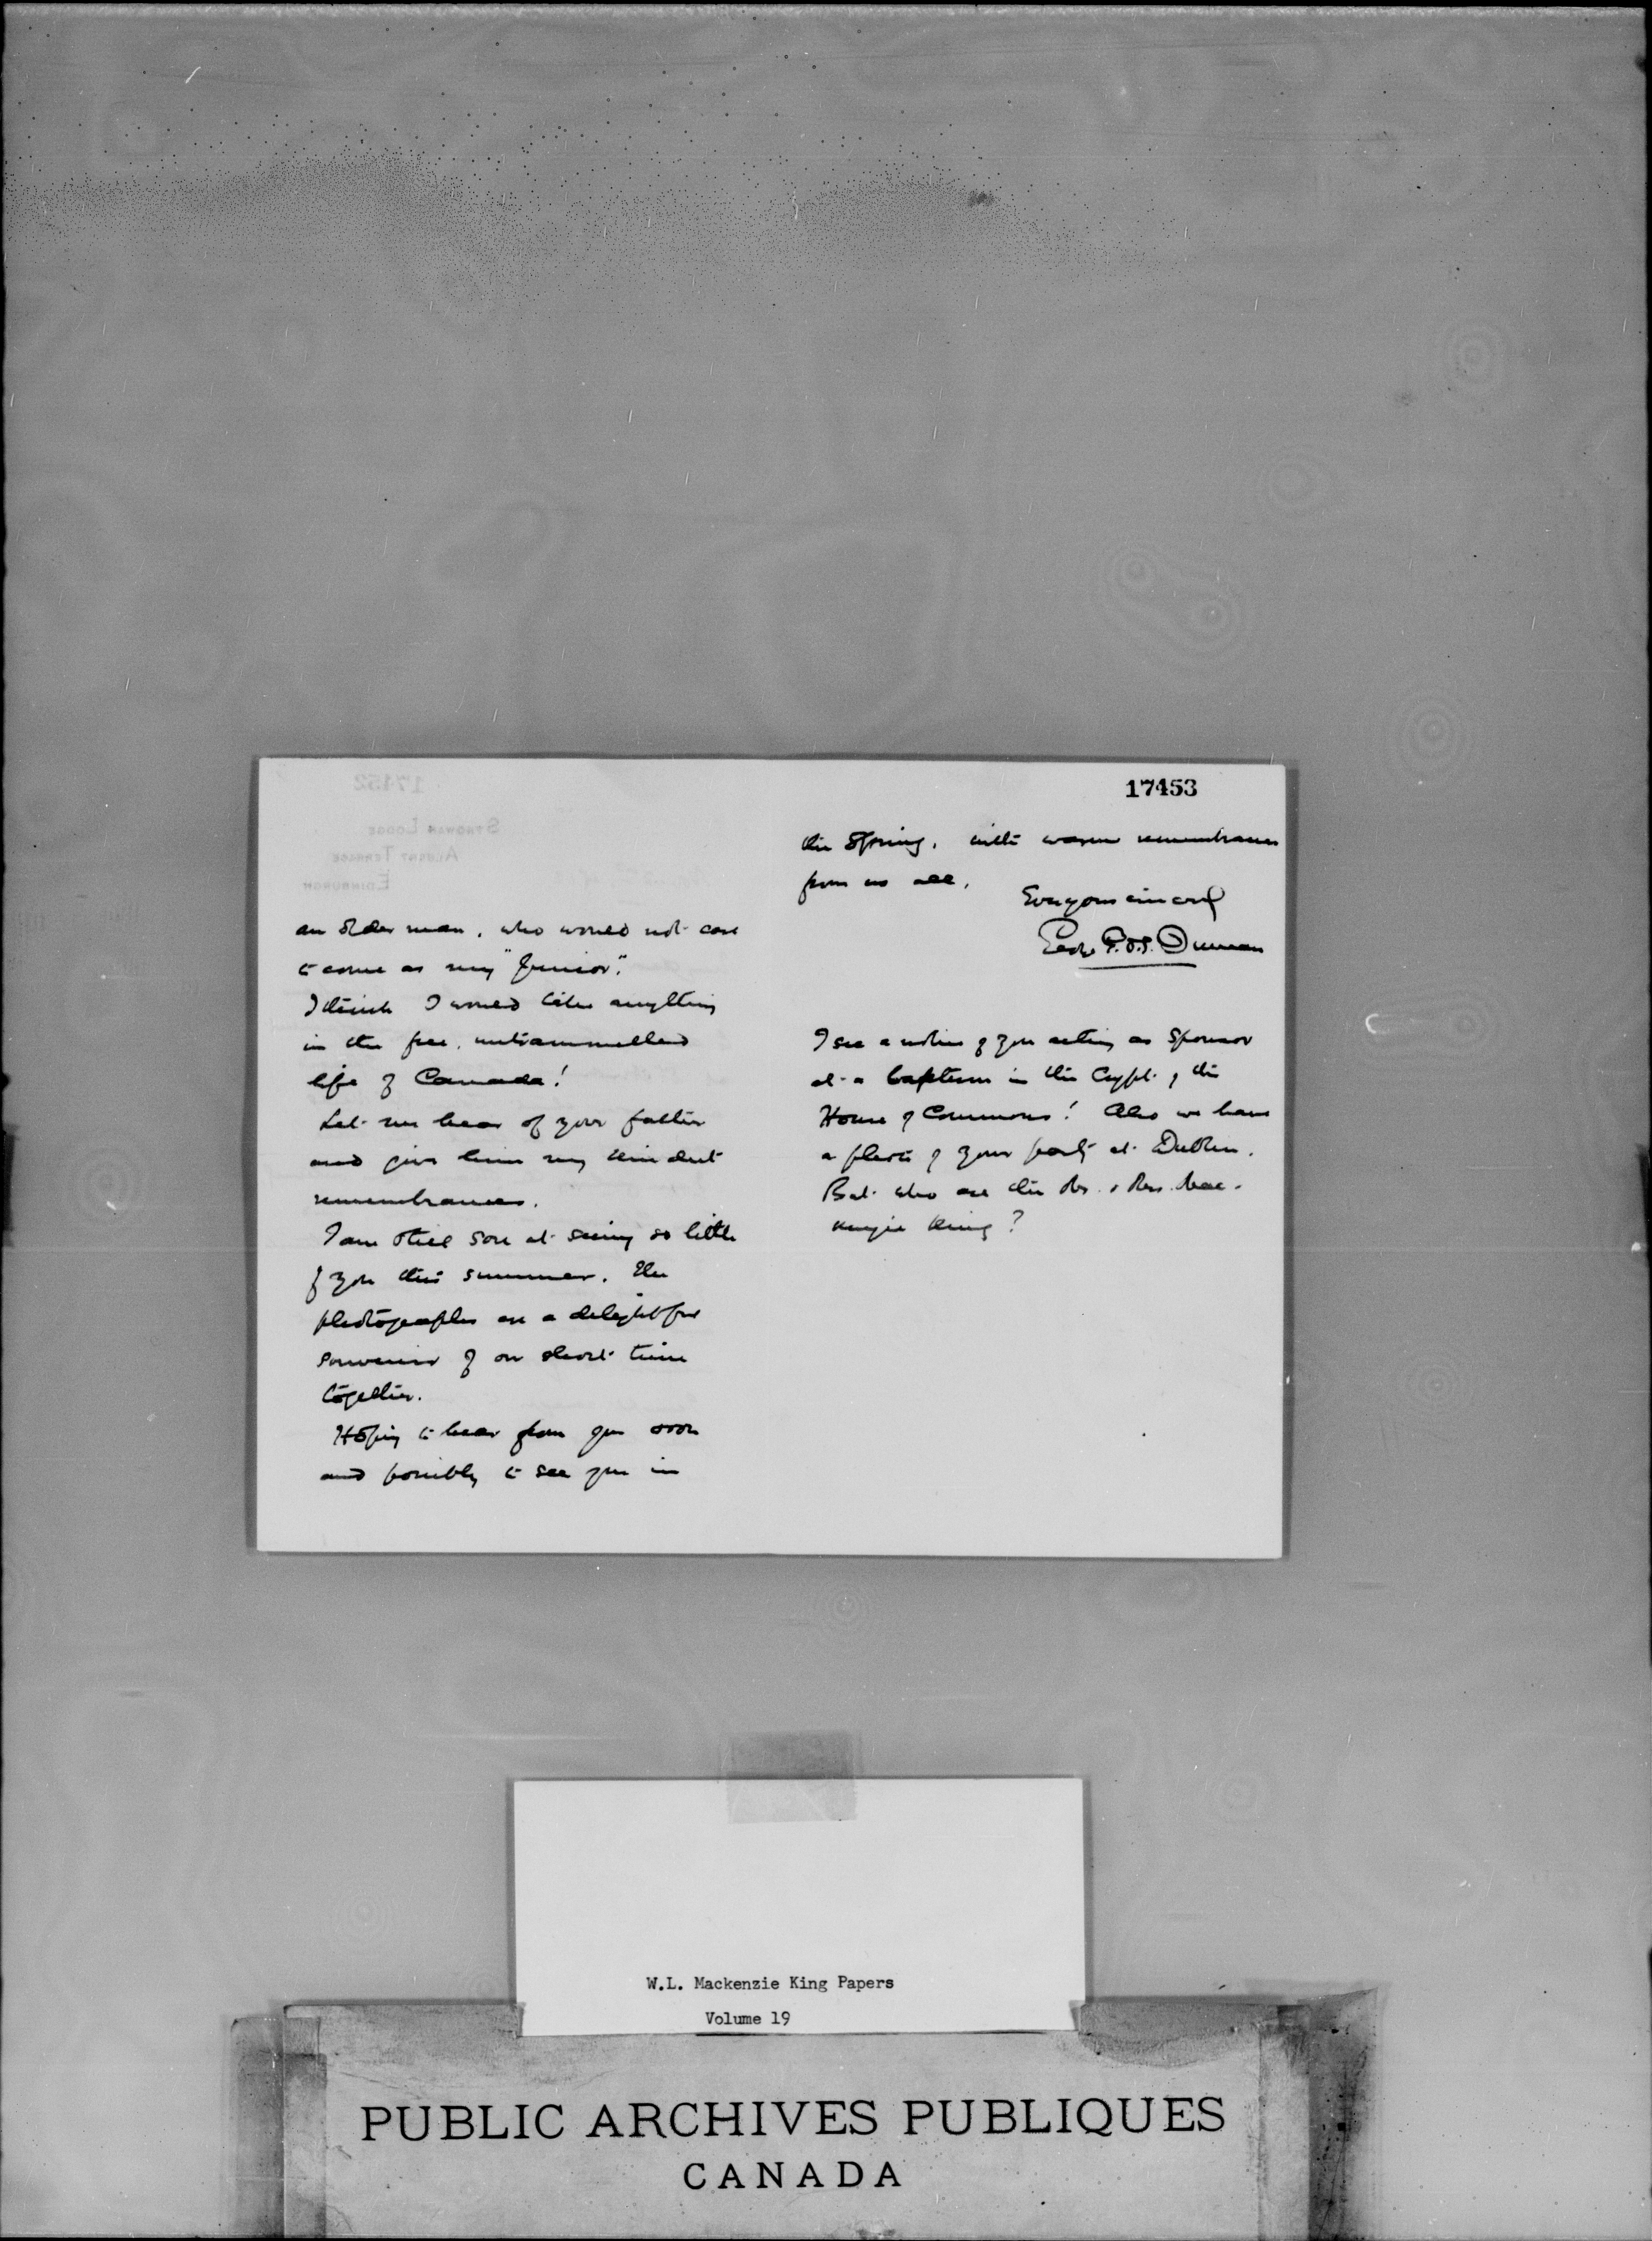 17453
an older man, who would not care
to come as my "Junior".
I think I would like anything
in the free, untrammelled
life of Canada!
Let me hear of your father
and give him my kindest
remembrances.
I am still sore at seeing so little
of you this summer. The
photographs are a delightful
souvenir of our short time
together.
Hoping to hear from you soon
and possibly to see you in
the Spring, with warm remembrances
from us all,
Ever yours sincerely
Geo. Duncan
I see a notice of you acting as Sponsor
at a baptism in the Crypt of the
House of Commons! Also we have
a photo of your party at Dublin.
But who are the Mr. & Mrs. Mac-
kenzie King?
W.L. Mackenzie King Papers
Volume 19
PUBLIC ARCHIVES PUBLIQUES
CANADA